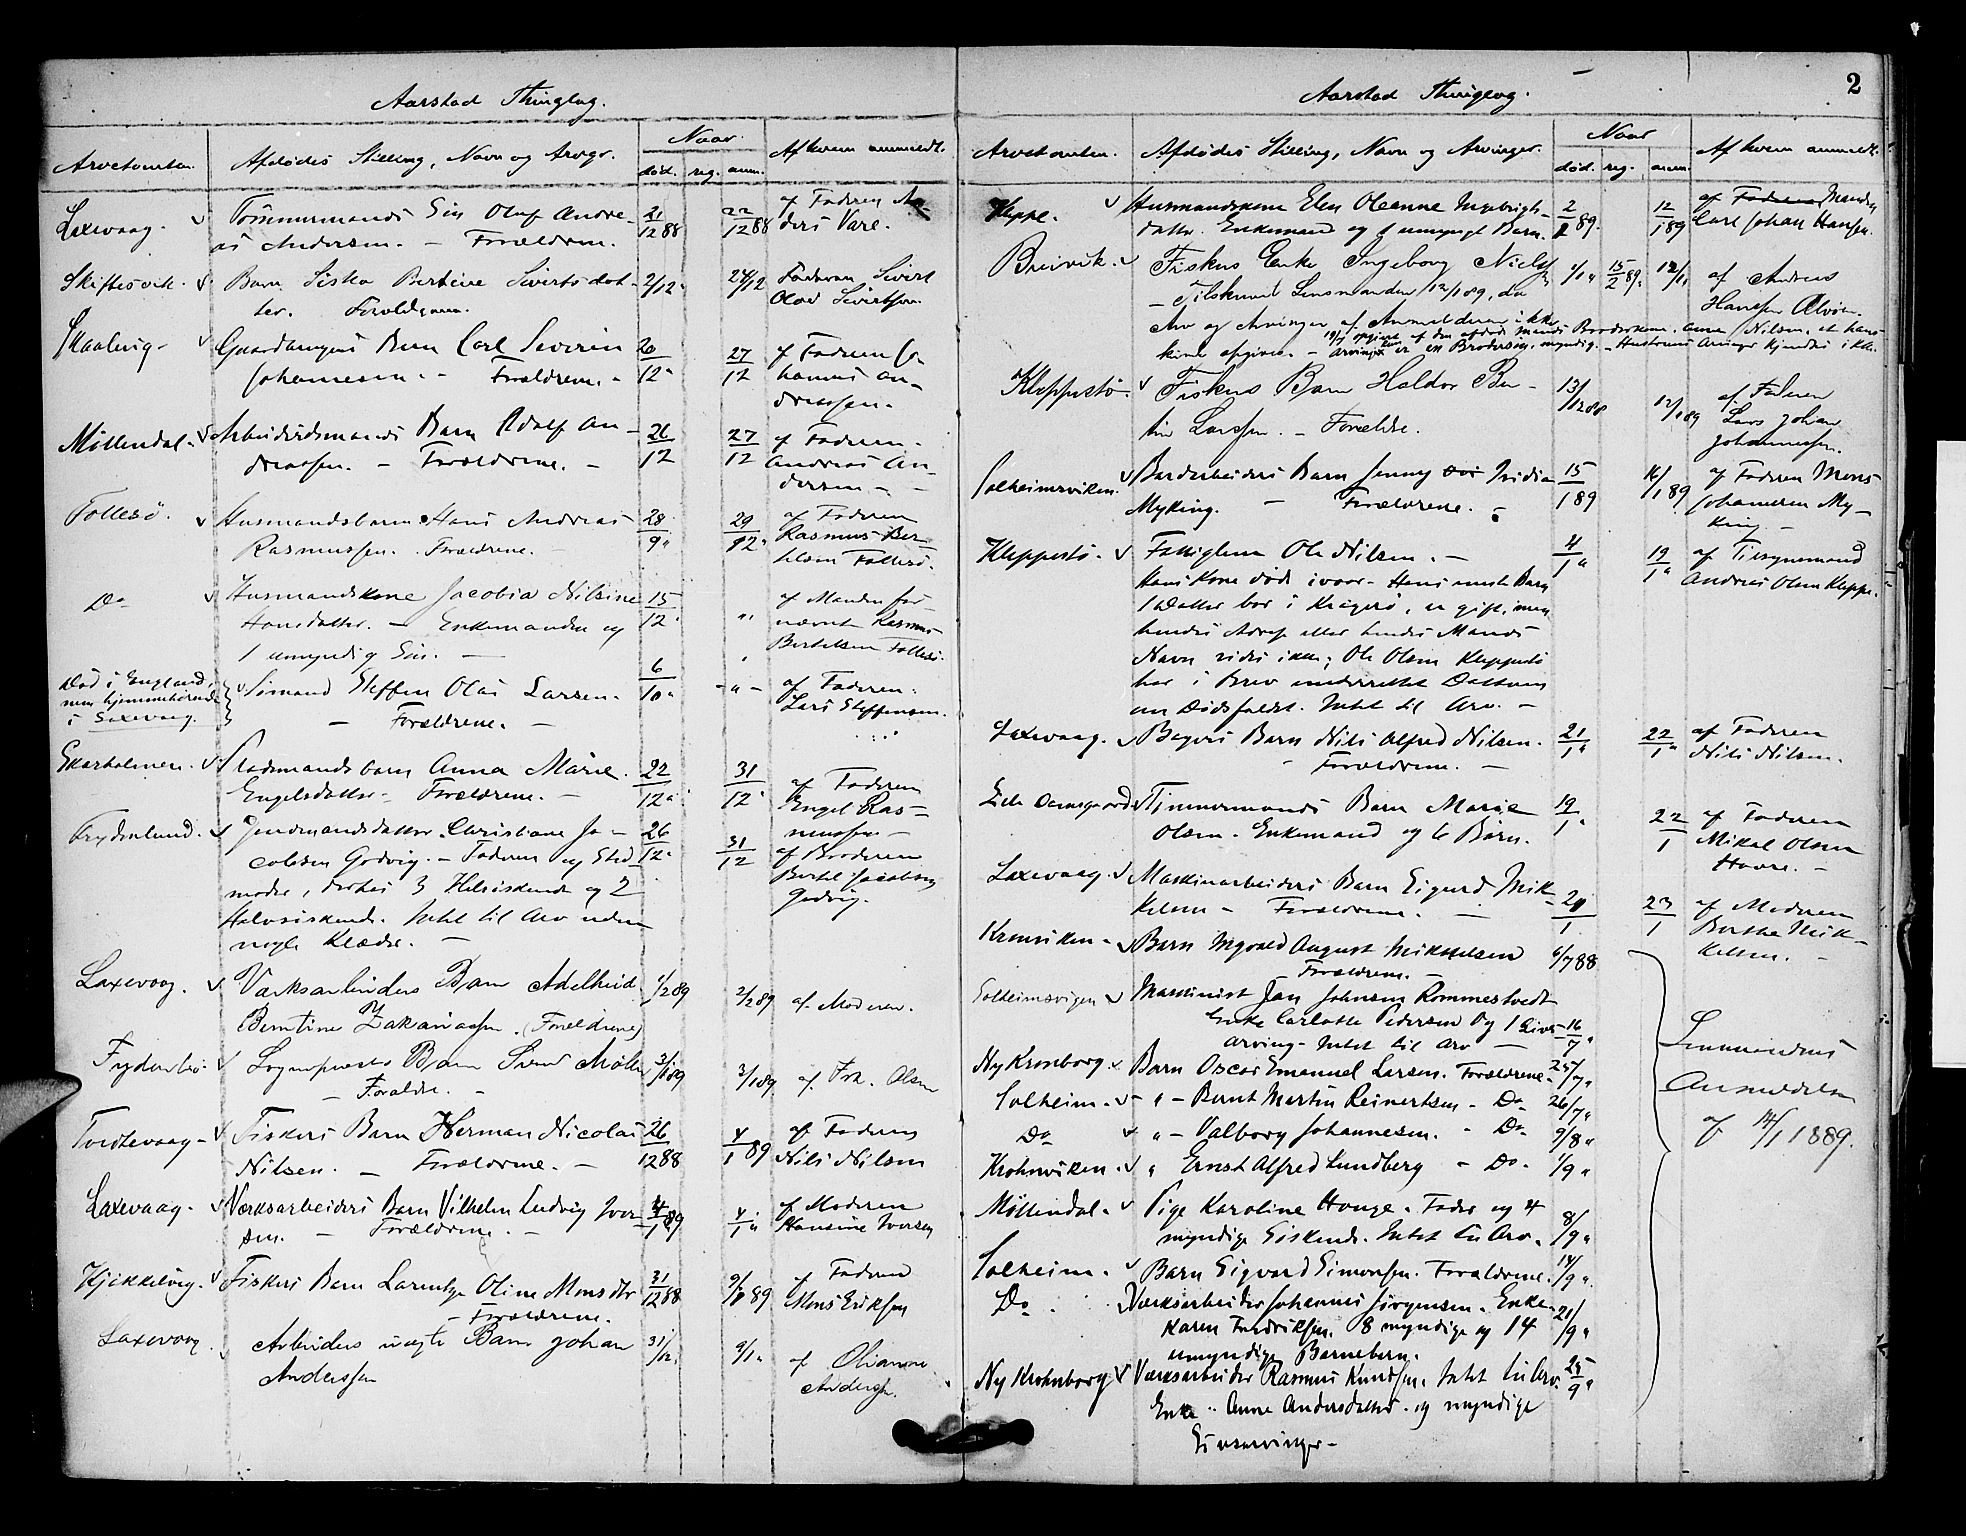 Aarstad Thinglag.
Arvetomten
Afdødes Stilling, Navn og Arvgr.
Naar
død. reg. anm.
Af hvem anmeldt.
Laxevaag. Tømmermands Søn Oluf Andre- 21/12 88 22/12 88 af Faderen An-
as Andersen. - Forældrene. ders Vare.
Skiftesvik. Barn Siska Bertine Siverts dat- 2/12 " 24/12 Faderen Sivert
ter. Forældrene. Olav Sivertsen
Skaalevig - Gaardbrugers Barn Carl Severin 20/12 " 27/12 af Faderen Jo-
Johannesen. - Forældrene. - hannes An-
dreassen.
Møllendal. Arbeidsmands Barn Adolf An- 26/12 27/12 af Faderen
dreassen. - Forældrene. - Andreas An-
dersen -
Follesø. Husmandsbarn Hans Andreas 28/9 " 29/12 " af Faderen
Rasmussen. Forældrene. - Rasmus Ber-
telsen Follesø.
Do Husmandskone Jacobia Nilsine 15/12 " " af Manden for-
Hansdatter. - Enkemanden og nævnt Rasmus
1 umyndig Søn. - Bertelsen Follesø.
Død i England, men hjemmehørende i Laxevaag. Sømand Steffen Olai Larsen. 6/10 " - " - af Faderen
- Forældrene. - Lars Steffensen.
Skarholmen. Stadsmandsbarn Anna Marie 22/12 " 31/12 " af Faderen
Engelsdatter - Forældrene. - Engel Ras-
mussen -
Frydenlund. Christiane Ja- 26/12 " 31/12 af Broderen
cobsen Godvig. - Faderen og Sted- Bertel Jacobsen
moder, derhos 3 Helsøskende og 2 Godvig.
Halvsøskende. Intet til Arv uden
nogle Klæder. -
Laxevaag. Værksarbeiders Barn Adelheid 1/2 89 2/2 89 af Moderen.
Berntine Zakariassen. (Forældrene)
Sogneprests Barn Svend Møller 3/1 89 3/1 89 af Frk. Olsen
- Forældre. -
Tvedtevaag - Fiskers Barn Herman Nicolai 26/12 88 4/1 89 af Faderen
Nilsen. - Forældrene. - Nils Nilsen
Laxevaag. Værksarbeiders Barn Vilhelm Ludvig Iver- 4/1 89 4/1 " af Moderen
sen. - Forældrene. - Hansine Iversen
Kjøkkelvig. Fiskers Barn Larentze Oline Monsdtr 31/12 88 9/1 89 af Faderen
- Forældrene. Mons Eriksen
Laxevaag Arbeiders uægte Barn Johan 31/12 " 9/1 " af Olianna
Anderssen Anderss.
2
Aarstad Thinglag.
Arvetomten. Afdødes Stilling, Navn og Arvinger. Naar død. reg. anm. Af hvem anmeldt.
Kleppe. Husmandskone Elen Oleanne Ingebrigts- 2/1 89. 12/1 89 af Faderen Manden
datter. Enkemand og 1 umyndigt Barn. Carl Johan Hansen.
Breivik. Fiskers Enke Ingeborg Niels 1/1 " 15/2 89 12/1 " af Andreas
- Tilskrevet Lensmanden 12/1 89, da Hanssen Alvøen
Arv og Arvinger af Anmelderen ikke
kunde opgives. -
Kleppestø. Fiskers Barn Haldor Ber- 13/12 88 12/1 89 af Faderen
tin Larssen. - Forældre. Lars Johan
Johannessen.
Solheimsviken. Barn Jenny 15/1 89 16/1 89 af Faderen Mons
Myking. - Forældrene. Johannesen My-
king. -
Kleppestø. Fattiglem Ole Nilsen. - 4/1 " 19/1 " af Tilsynsmand
Hans Kone død ivaar. Hans eneste Barn Andreas Olsen Kleppe.
1 Datter bor i Kragerø, er gift, men
hendes Adresse eller hendes Mands
Navn vides ikke; Ole Olsen Kleppestø
har i Brev underrettet Datteren
om Dødsfaldet. Intet til Arv. -
Laxevaag. Bagers Barn Nils Alfred Nilsen. 21/1 " 22/1 " af Faderen
- Forældrene. - Nils Nilsen.
Lille Damsgaard Tømmermands Barn Marie 19/1 " 22/1 af Faderen
Olsen. Enkemand og 6 Børn. Mikal Olsen
Havre. -
Laxevaag. Maskinarbeiders Barn Sigurd Mik- 20/1 23/1 af Moderen
kelsen - Forældrene. - Berthe Mik-
kelsen. -
Kronviken - Barn Ingvald August Mikkelsen 6/7 88
Forældrene. -
Solheimsvigen Maskinist Jan Johnsen Rommetvedt
Enke Carlotte Pedersen og 1 Livs- 16/7 "
arving - Intet til Arv -
Ny Kronborg. Barn Oscar Emanuel Larsen. Forældrene. 25/7 "
Solheim. - " - Bernt Martin Reinertsen - Do 26/7 "
Do " - Valborg Johannesen. - Do 9/8 "
Krohnviken. " Ernst Alfred Lundberg - Do. 1/9 "
Møllendal. Pige Karoline Hauge. Fader og 4 8/9 "
myndige Søskende. Intet til Arv.
Solheim. Barn Sigvard Simonsen. Forældrene. 14/9 "
Do. Værksarbeider Johannes Jørgensen. Enke 21/9 "
Karen Fredriksen. 8 myndige og 14
umyndige Børnebørn.
Ny Krohnborg. Værksarbeider Rasmus Knudsen. Intet til Arv. 25/9 "
Enke Anne Andersdatter og myndige
Livsarvinger -
Lensmandens
Anmeldelse
af 14/1 1889.